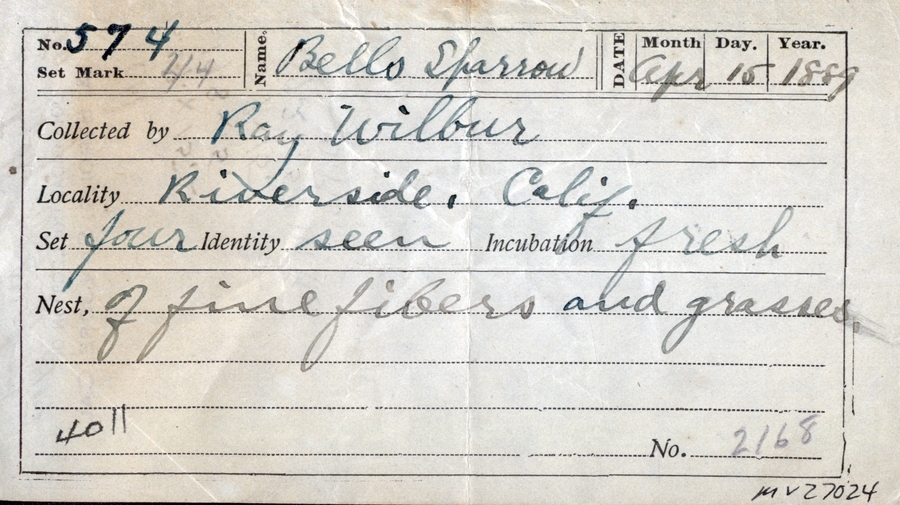 No. 574 Name. Bells Sparrow DATE Month Day. Year.
Set Mark 2/4 Apr 15 1889
Collected by Ray Wilbur
Locality Riverside. Calif.
Set four Identity seen Incubation fresh
Nest, of fine fibers and grasses.
4011
No. 2168
MVZ7024